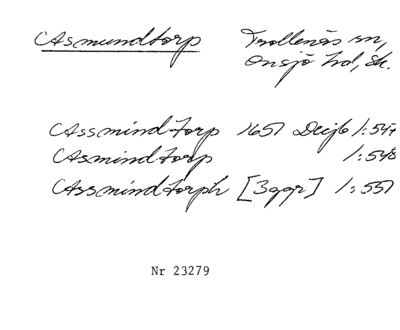 Asmundtorp Trollenäs sn,
Onsjö hd, Sk.
Assmindtorp 1651 DeijB 1:547
Asmindtorp 1:548
Assmindtorph [3ggr] 1:551
Nr 23279